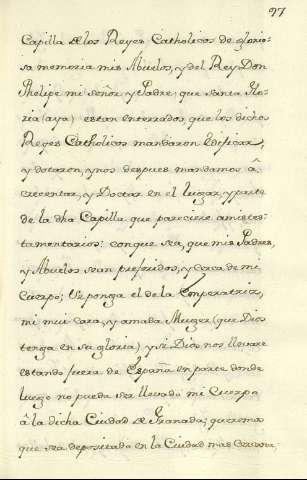 97
Capilla de los Reyes Catholicos de glorio-
sa memoria mis Abuelos, y del Rey Don
Phelipe mi señor y Padre, que santa Glo-
ria (aya) estan enterrados, que los dichos
Reyes Catholicos mandaron Edificar,
y dotaron, y nos despues mandamos â
crecentar, y Doctar en el lugar, y parte
de la dha Capilla que pareciere a mis tes-
tamentarios: con que sea, que mis Padres,
y Abuelos sean preferidos, y Cerca de mi
Cuerpo; se ponga el de la Emperatriz,
mi mui cara, y amada Muger (que Dios
tenga en su gloria) y si Dios nos llevare
estando fuera de España en parte donde
luego no pueda ser llevado mi Cuerpo
â la dicha Ciudad de Granada; queremos
que sea depositado en la Ciudad mas